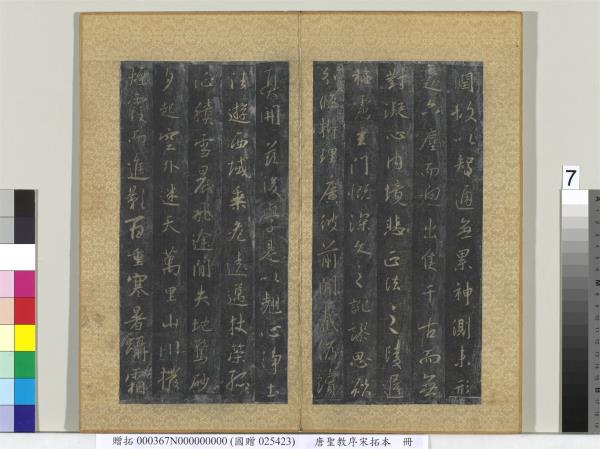 潤故以智通無累神測未形
超六塵而迥出隻千古而無
對凝心內境悲正法之陵遲
栖慮玄門慨深文之訛謬思欲
分條析理廣彼前聞截偽續
真開茲後學是以翹心淨土
法遊西域乘危遠邁杖策孤
征積雪晨飛途閒失地驚砂
夕起空外迷天萬里山川撥
煙霞而進影百重寒暑躡霜
7
贈拓 000367N000000000 (國贈 025423) 唐聖教序宋拓本 冊